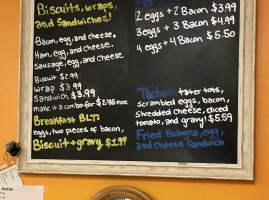 Biscuits, wraps,
and Sandwiches!
Bacon, egg, and cheese.
Ham, egg, and cheese.
Sausage, egg, and cheese
Biscuit $2.99
Wrap $3.99
Sandwich $3.99
make it a combo for $2.75 more
Breakfast BLTs
eggs, two pieces of bacon,
Biscuit + gravy $1.99
2 eggs + 2 Bacon $3.99
3 eggs + 3 Bacon $4.99
4 eggs + 4 Bacon $5.50
tater tots,
scrambled eggs, bacon,
Shredded cheese, diced
tomato, and gravy! $5.59
Fried Bologna, egg,
and cheese Sandwich